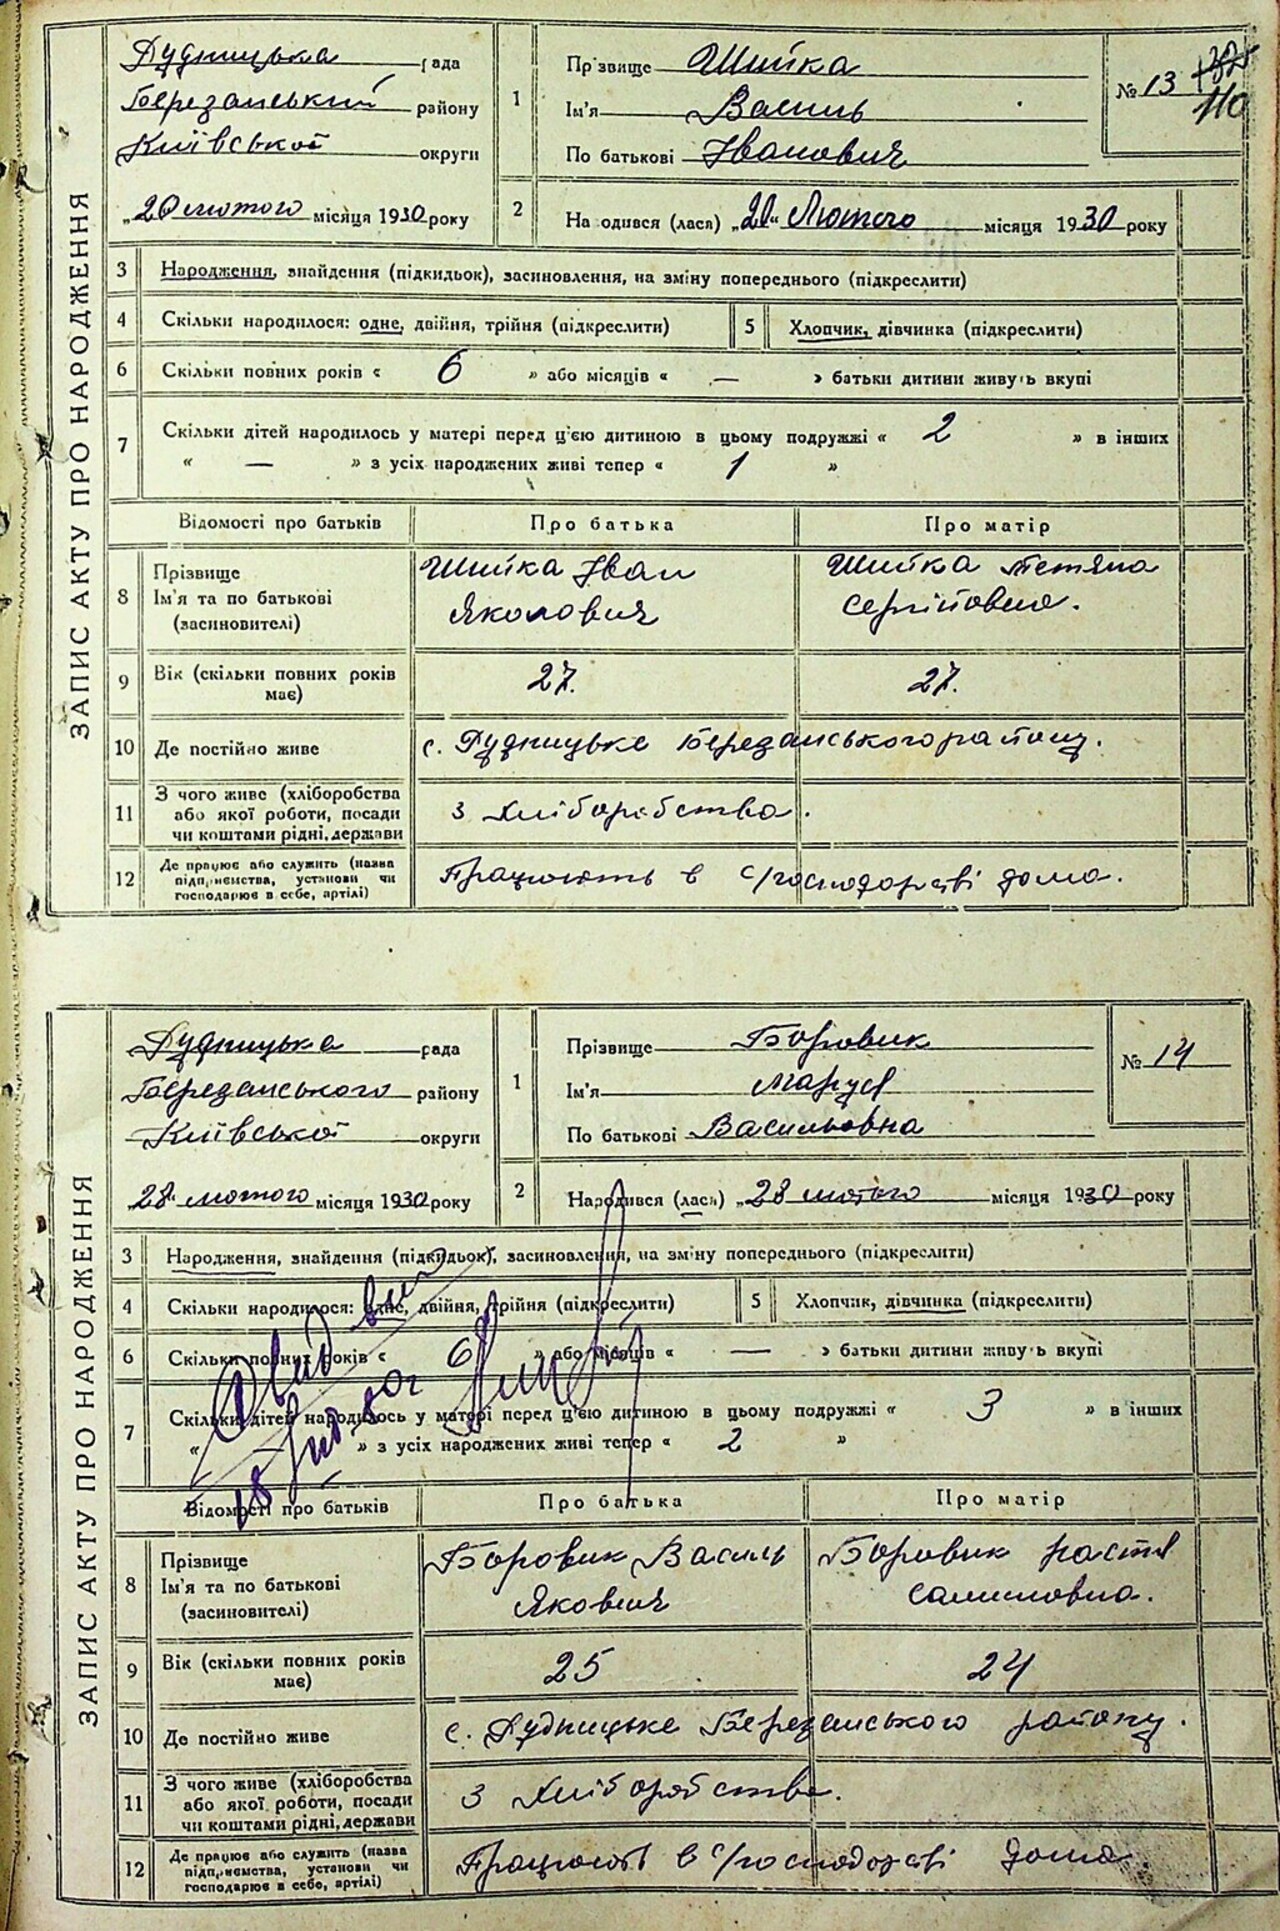 ЗАПИС АКТУ ПРО НАРОДЖЕННЯ
Рудницька рада
Березанський району
Київської округи
„20 лютого місяця 1930 року
1
Прізвище Шийка
Ім'я Василь
По батькові Іванович
№ 13
110
2 Народився (лася) „20“ Лютого місяця 1930 року
3 Народження, знайдення (підкидьок), засиновлення, на зміну попереднього (підкреслити)
4 Скільки народилося: одне, двійня, трійня (підкреслити) 5 Хлопчик, дівчинка (підкреслити)
6 Скільки повних років « 6 » або місяців « — » батьки дитини живуть вкупі
7 Скільки дітей народилось у матері перед ц'єю дитиною в цьому подружжі « 2 » в інших
« — » з усіх народжених живі тепер « 1 »
Відомості про батьків Про батька Про матір
8 Прізвище
Ім'я та по батькові
(засиновителі)
Шийка Іван
Якович
Шийка Тетяна
Сергіївна.
9 Вік (скільки повних років
має)
27. 27.
10 Де постійно живе с. Рудницьке Березанського району.
11 З чого живе (хліборобства
або якої роботи, посади
чи коштами рідні, держави
з Хліборобства.
12 Де працює або служить (назва
підприємства, установи чи
господарює в себе, артілі)
Працюють в с/господарстві дома.
ЗАПИС АКТУ ПРО НАРОДЖЕННЯ
Рудницька рада
Березанського району
Київської округи
„28“ лютого місяця 1930 року
1
Прізвище Боровик
Ім'я Маруся
По батькові Васильовна
№ 14
2 Народився (лася) „28 лютого місяця 1930 року
3 Народження, знайдення (підкидьок), засиновлення, на зміну попереднього (підкреслити)
4 Скільки народилося: одне, двійня, трійня (підкреслити) 5 Хлопчик, дівчинка (підкреслити)
6 Скільки повних років « 6 » або місяців « — » батьки дитини живуть вкупі
7 Скільки дітей народилось у матері перед ц'єю дитиною в цьому подружжі « 3 » в інших
« — » з усіх народжених живі тепер « 2 »
Відомості про батьків Про батька Про матір
8 Прізвище
Ім'я та по батькові
(засиновителі)
Боровик Василь
Якович
Боровик
9 Вік (скільки повних років
має)
25 24
10 Де постійно живе с. Рудницьке Березанського району.
11 З чого живе (хліборобства
або якої роботи, посади
чи коштами рідні, держави
З Хліборобства.
12 Де працює або служить (назва
підприємства, установи чи
господарює в себе, артілі)
Працюють в с/господарстві дома.